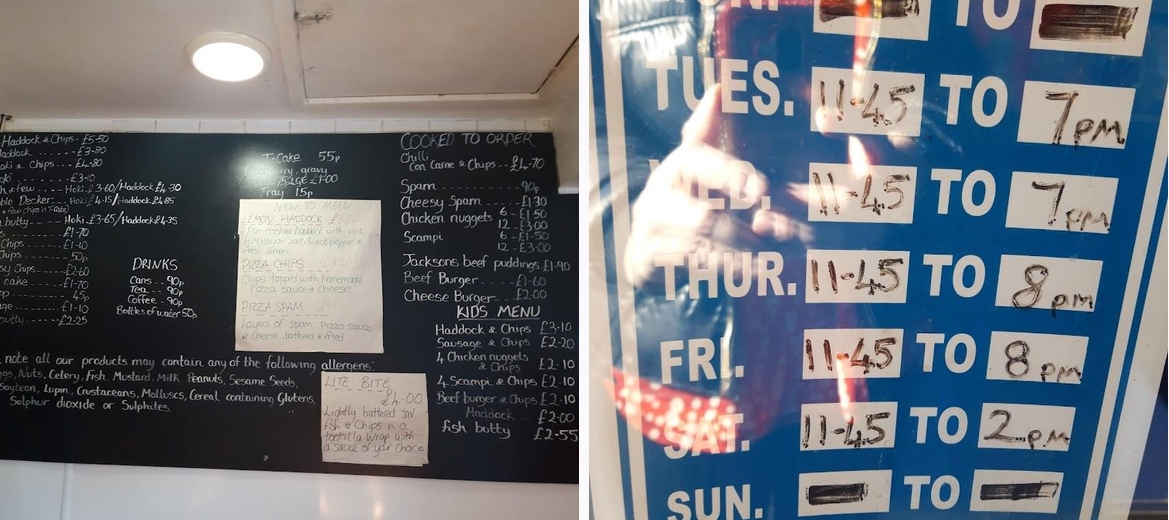 Haddock & Chips - £5-50
addock ---- £3-80
oki & Chips - £4-80
oki ---- £3-40
Hoki £3-60/Haddock £4-30
ble Decker Hoki £4-15/Haddock £4-85
butty Hoki £3-65/Haddock £4-35
£1-70
Chips £1-10
50p
sy Chips £2-60
cake £1-70
45p
£1-10
butty £2-25
DRINKS
Cans - 90p
Tea - 90p
Coffee - 90p
Bottles of water 50p
T-Cake 55p
gravy
LGE £1-00
Tray 15p
NEW TO MENU
LEMON HADDOCK
Pan cooked haddock with pink
Himalayan salt, Black pepper &
fresh lemon.
PIZZA CHIPS
Chips topped with homemade
Pizza sauce & Cheese
PIZZA SPAM
Layers of spam, Pizza sauce
& Cheese, battered & fried
COOKED TO ORDER
Chilli
Con Carne & Chips -- £4-70
Spam ---- 90p
Cheesy Spam ---- £1-30
Chicken nuggets 6 - £1-50
12 - £3-00
Scampi 6 - £1-50
12 - £3-00
Jacksons beef puddings £1-90
Beef Burger ---- £1-60
Cheese Burger ---- £2-00
KIDS MENU
Haddock & Chips £3-10
Sausage & Chips £2-20
4 Chicken nuggets
& Chips £2-10
4 Scampi & Chips £2-10
Beef burger & Chips £2-10
Haddock £2-00
fish butty £2-55
note all our products may contain any of the following allergens:
gs, Nuts, Celery, Fish, Mustard, Milk, Peanuts, Sesame Seeds,
Soybean, Lupin, Crustaceans, Molluscs, Cereal containing Glutens,
Sulphur dioxide or Sulphites.
LITE BITE
£4.00
Lightly battered
fish & Chips in a
tortilla wrap with
a sauce of your choice
TO
TUES. 11-45 TO 7pm
WED. 11-45 TO 7pm
THUR. 11-45 TO 8pm
FRI. 11-45 TO 8pm
SAT. 11-45 TO 2pm
SUN. TO